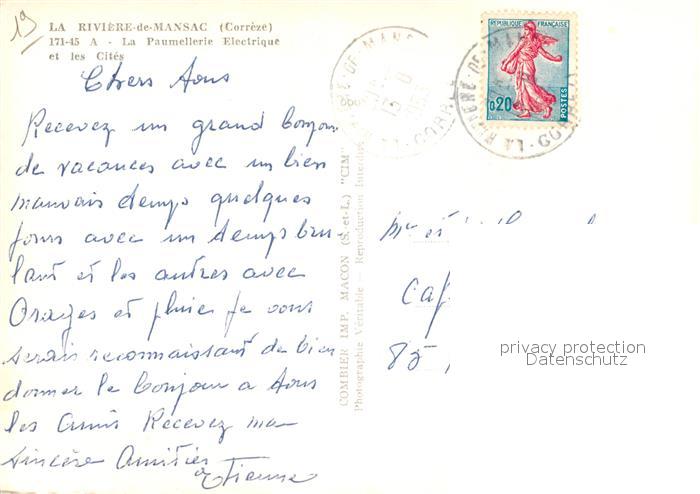 19
LA RIVIÈRE-de-MANSAC (Corrèze)
171-45 A - La Paumellerie Electrique
et les Cités
Chers Tous
Recevez un grand bonjour
de vacances avec un bien
mauvais temps quelques
jours avec un temps bru
lant et les autres avec
Orages et pluie je vous
serais reconnaissant de bien
donner le bonjour a tous
les Amis Recevez ma
sincère Amitiés
Etienne
COMBIER IMP. MACON (S.-et-L.) "CIM"
Photographie Véritable - Reproduction Interdite
REPUBLIQUE FRANÇAISE
0,20
POSTES
LA RIVIERE-DE-MANSAC
CORREZE
Mr et
Caf
85,
privacy protection
Datenschutz